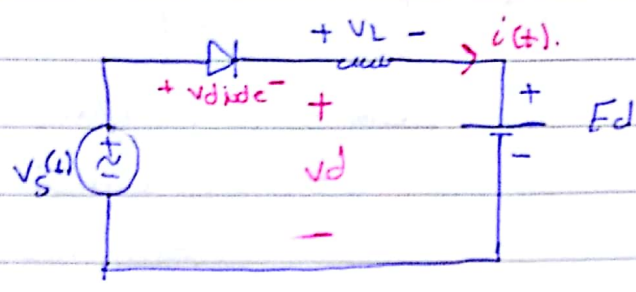 + VL - i(t).
+ vdiode -
+
+ Ed
vs(t) + -
vd
-
-